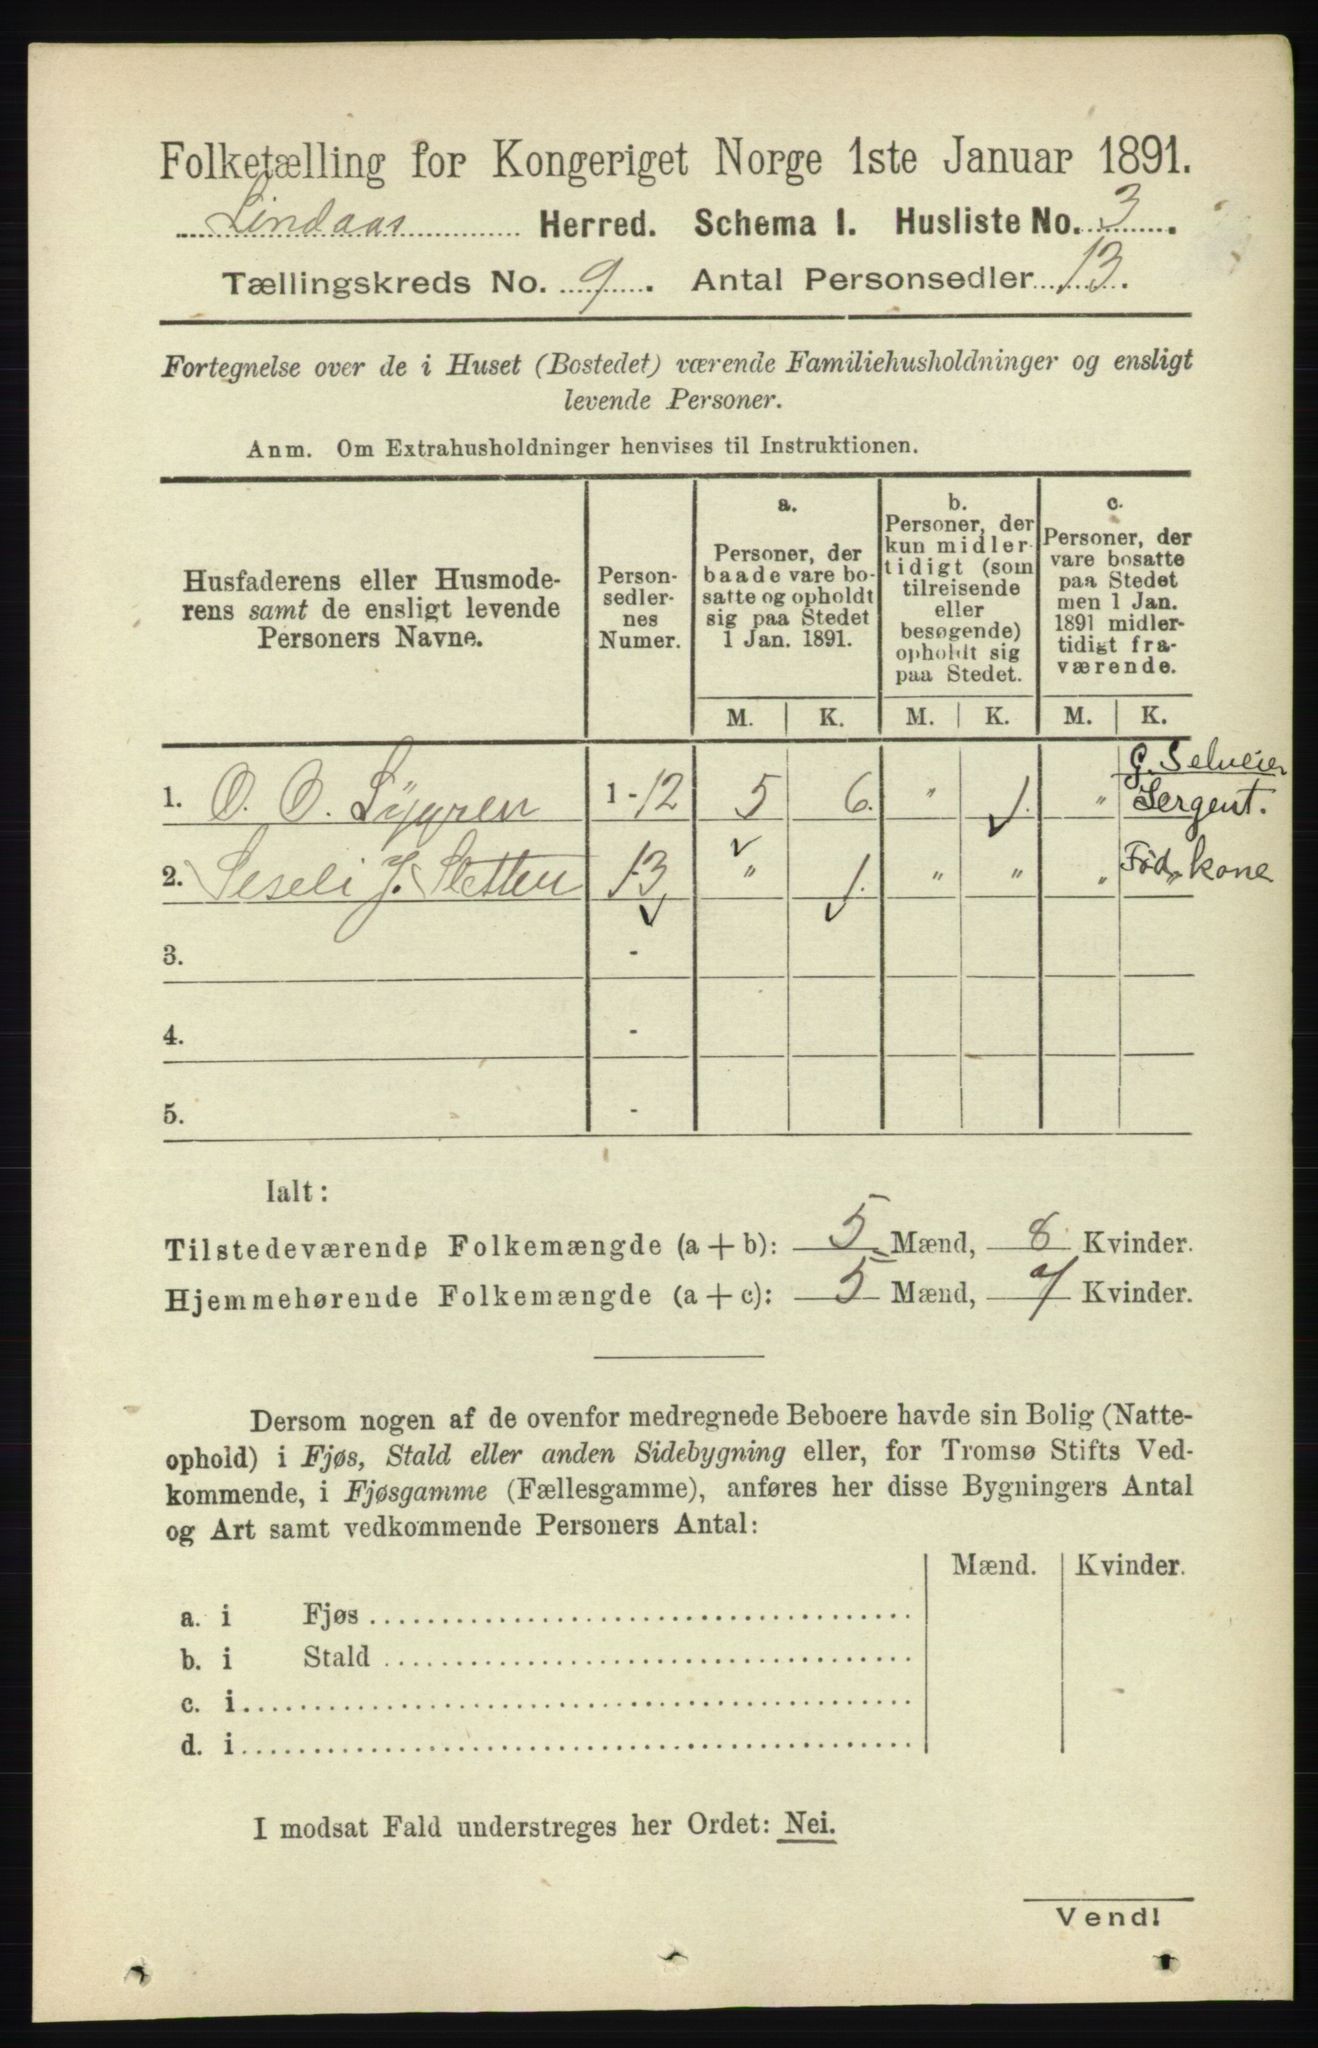 Folketælling for Kongeriget Norge 1ste Januar 1891.
Lindaas Herred. Schema I. Husliste No. 3.
Tællingskreds No. 9. Antal Personsedler 13.
Fortegnelse over de i Huset (Bostedet) værende Familiehusholdninger og ensligt
levende Personer.
Anm. Om Extrahusholdninger henvises til Instruktionen.
Husfaderens eller Husmode-
rens samt de ensligt levende
Personers Navne.
Person-
sedler-
nes
Numer.
a.
Personer, der
baade vare bo-
satte og opholdt
sig paa Stedet
1 Jan. 1891.
b.
Personer, der
kun midler-
tidigt (som
tilreisende
eller
besøgende)
opholdt sig
paa Stedet.
c.
Personer, der
vare bosatte
paa Stedet
men 1 Jan.
1891 midler-
tidigt fra-
værende.
M. K. M. K. M. K.
G. Selveier
1. O. O. Lygren 1-12 5 6. " 1. " Sergent.
2. Seseli J. Sletten 13 " 1. " " " Fød. " kone
3. -
4. -
5. -
Ialt:
Tilstedeværende Folkemængde (a + b): 5 Mænd, 8 Kvinder.
Hjemmehørende Folkemængde (a + c): 5 Mænd, 7 Kvinder.
Dersom nogen af de ovenfor medregnede Beboere havde sin Bolig (Natte-
ophold) i Fjøs, Stald eller anden Sidebygning eller, for Tromsø Stifts Ved-
kommende, i Fjøsgamme (Fællesgamme), anføres her disse Bygningers Antal
og Art samt vedkommende Personers Antal:
Mænd. Kvinder.
a. i Fjøs
b. i Stald
c. i
d. i
I modsat Fald understreges her Ordet: Nei.
Vend!